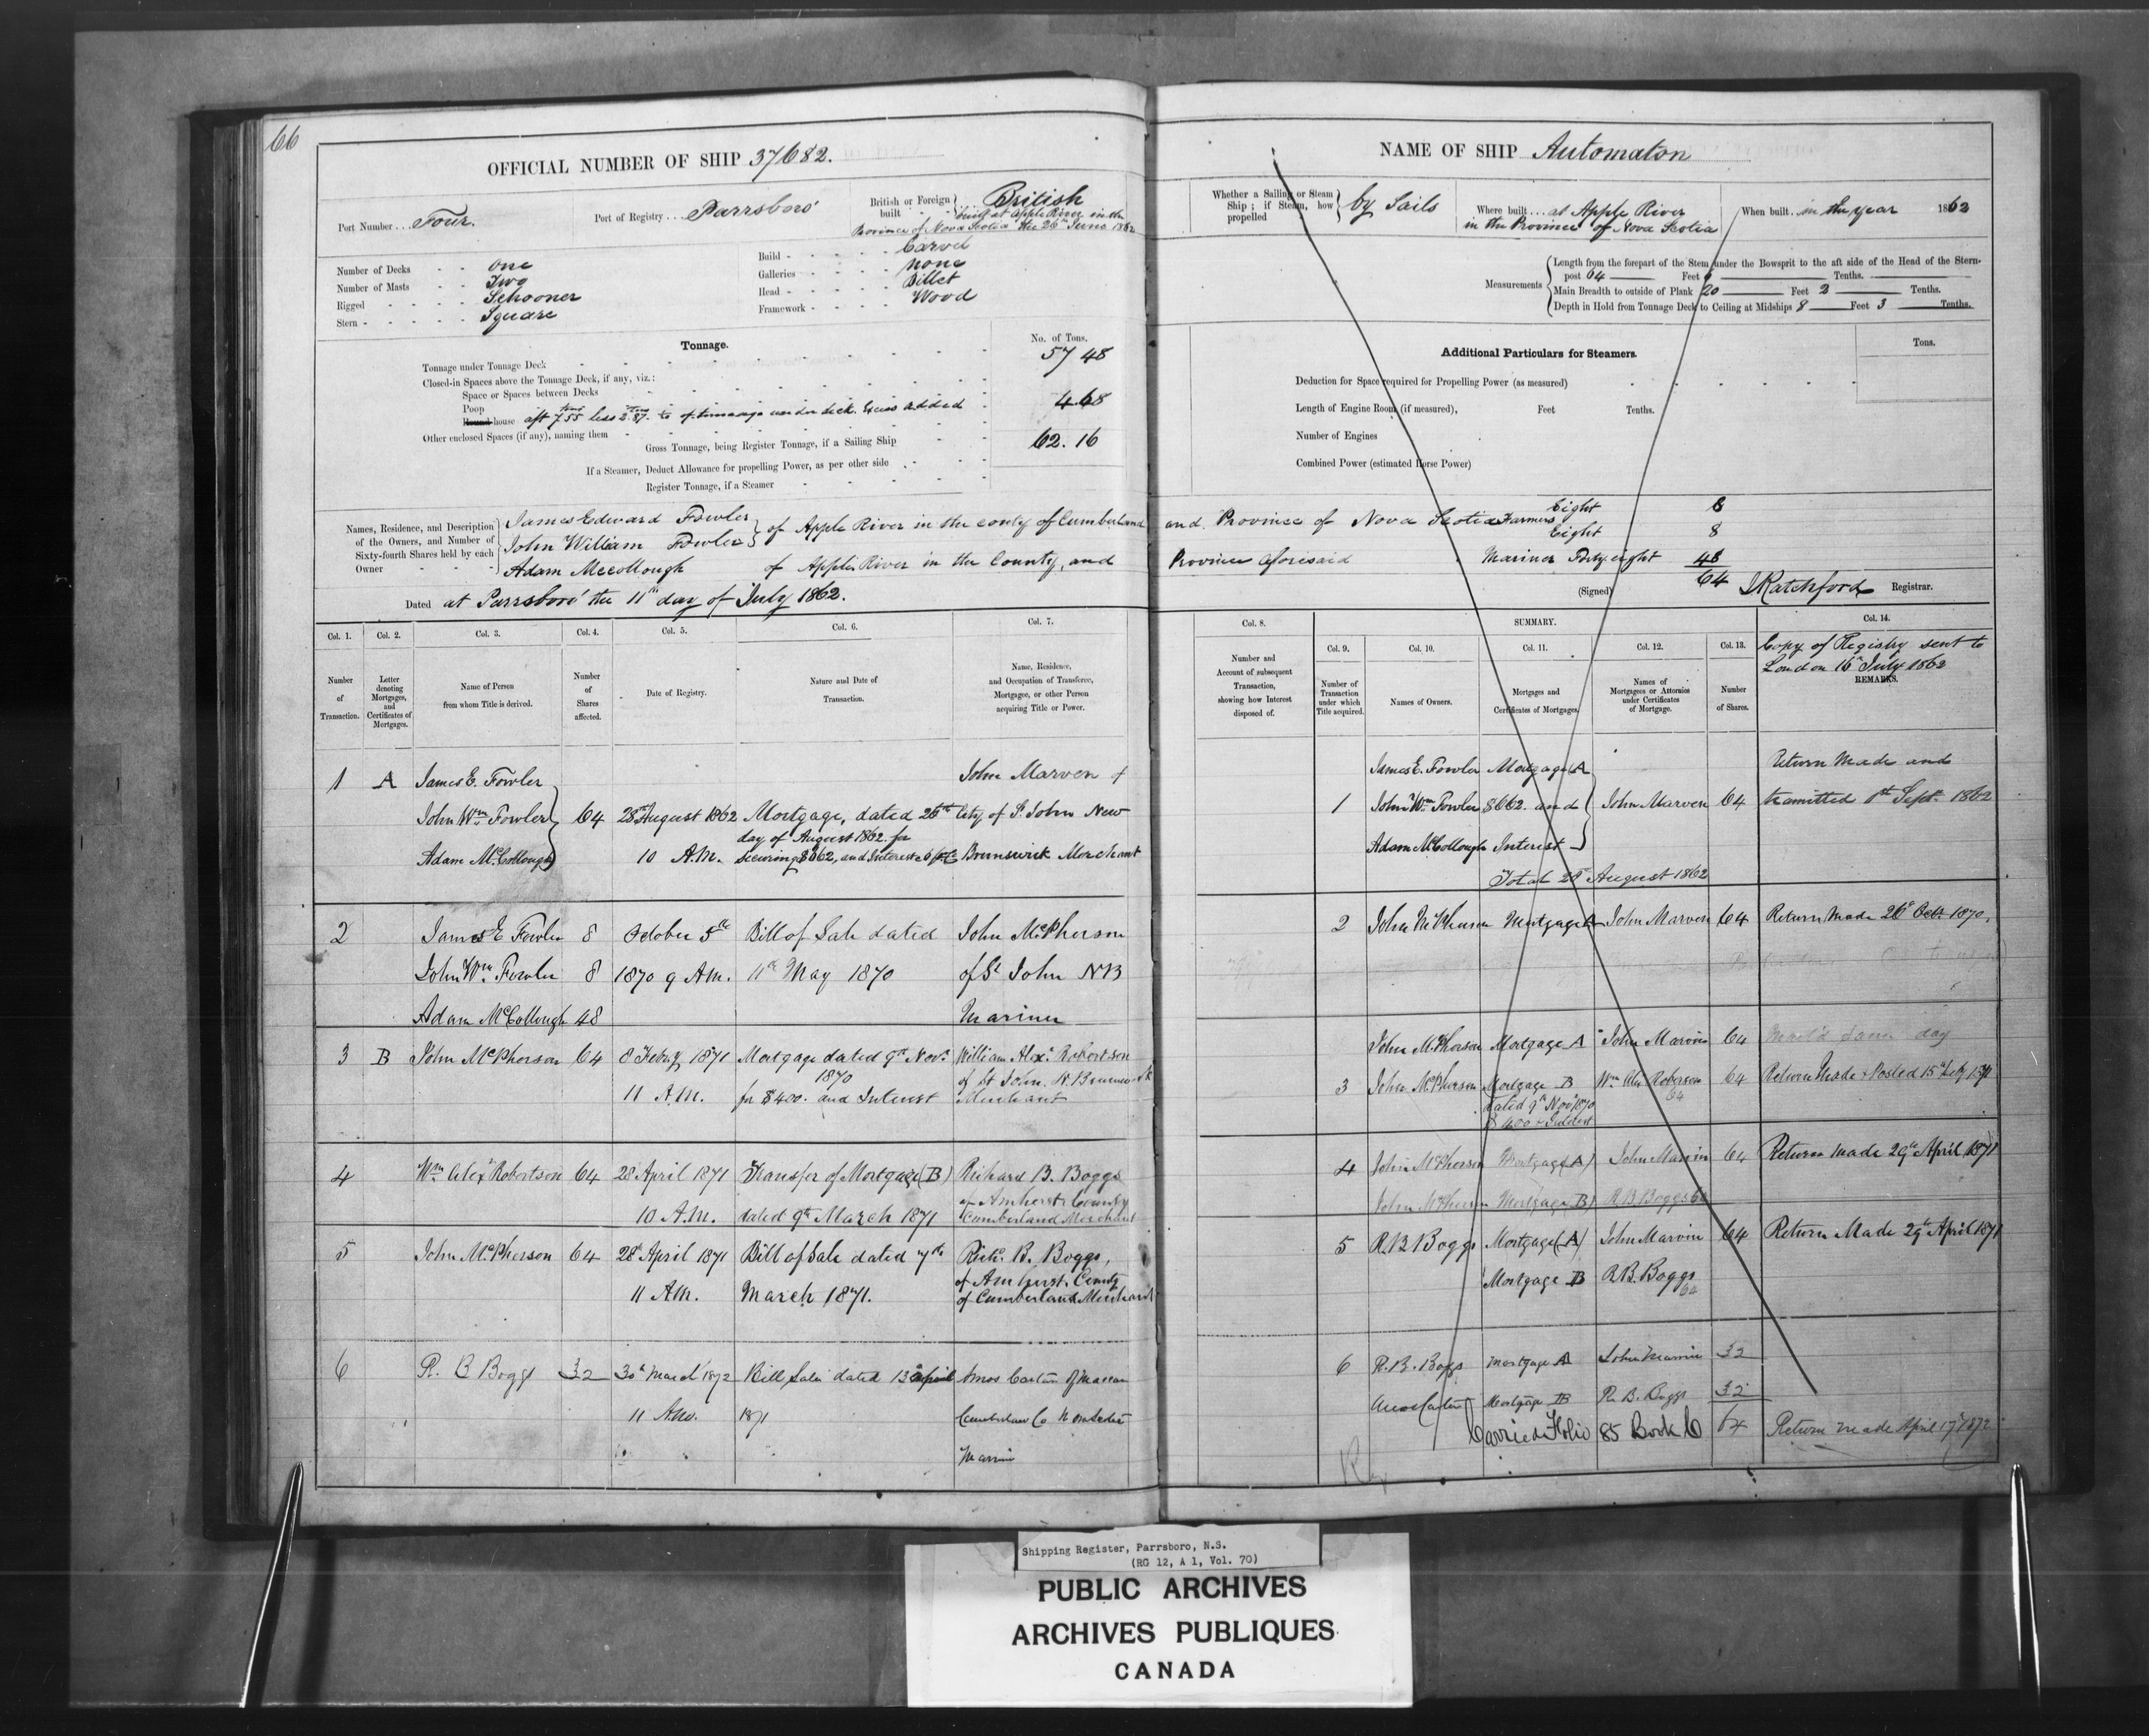 66
OFFICIAL NUMBER OF SHIP 37682.
Port Number . . . Four.
Port of Registry . . . Parrsboro'
British or Foreign built - - British
built at Apple River in the
Province of Nova Scotia the 26th June 1862
Number of Decks - - One
Number of Masts - - Two
Rigged - - - - Schooner
Stern - - - - - Square
Build - - - - - Carvel
Galleries - - - - None
Head - - - - - Billet
Framework - - - - Wood
Tonnage.
No. of Tons.
Tonnage under Tonnage Deck 57 48
Closed-in Spaces above the Tonnage Deck, if any, viz.:
Space or Spaces between Decks
Poop
Round house aft 7.55 less 2.87. to of tonnage under deck. Excess added 4.68
Other enclosed Spaces (if any), naming them
Gross Tonnage, being Register Tonnage, if a Sailing Ship 62.16
If a Steamer, Deduct Allowance for propelling Power, as per other side
Register Tonnage, if a Steamer
Names, Residence, and Description of the Owners, and Number of Sixty-fourth Shares held by each Owner
James Edward Fowler
John William Fowler } of Apple River in the county of Cumberland
Adam Mccollough of Apple River in the County, and
Dated at Parrsboro' the 11th day of July 1862.
NAME OF SHIP Automaton
Whether a Sailing or Steam Ship; if Steam, how propelled } by Sails
Where built . . . at Apple River
in the Province of Nova Scotia
When built . . in the year 1862
Measurements
Length from the forepart of the Stem under the Bowsprit to the aft side of the Head of the Stern-
post 64 Feet 6 Tenths.
Main Breadth to outside of Plank 20 Feet 2 Tenths.
Depth in Hold from Tonnage Deck to Ceiling at Midships 8 Feet 3 Tenths.
Additional Particulars for Steamers.
Tons.
Deduction for Space required for Propelling Power (as measured)
Length of Engine Room (if measured), Feet Tenths.
Number of Engines
Combined Power (estimated Horse Power)
and Province of Nova Scotia Farmers Eight 8
Eight 8
Province aforesaid Mariner Forty eight 48
64
(Signed) J Ratchford Registrar.
Col. 1. Col. 2. Col. 3. Col. 4. Col. 5. Col. 6. Col. 7.
Number of Transaction.
Letter denoting Mortgages, and Certificates of Mortgages.
Name of Person from whom Title is derived.
Number of Shares affected.
Date of Registry.
Nature and Date of Transaction.
Name, Residence, and Occupation of Transferee, Mortgagee, or other Person acquiring Title or Power.
1 A James E. Fowler John Marven of
John Wm Fowler 64 28th August 1862 Mortgage, dated 26th City of St John New
day of August 1862. for
Adam McCollough 10 A.M. securing $862, and Interest Brunswick Merchant
2 James E Fowler 8 October 5th Bill of Sale dated John McPherson
John Wm Fowler 8 1870 9 A.M. 11th May 1870 of St John NB
Adam McCollough 48 Mariner
3 B John McPherson 64 8 Feby 1871 Mortgage dated 9th Novr William Alexr Robertson
1870 of St John. N. Brunswick
11 A.M. for $400. and Interest Merchant
4 Wm Alexr Robertson 64 28 April 1871 Transfer of Mortgage (B) Richard B. Boggs
of Amherst County
10 A.M. dated 9th March 1871 Cumberland Merchant
5 John McPherson 64 28 April 1871 Bill of Sale dated 7th Richd. B. Boggs,
of Amherst, County
11 A.M. March 1871. of Cumberland Merchant
6 R. B Boggs 32 30th March 1872 Bill Sale dated 13 April Amos of Maccan
11 Am. 1871 Cumberland Co
Col. 8.
Number and Account of subsequent Transaction, showing how Interest disposed of.
SUMMARY.
Col. 9. Col. 10. Col. 11. Col. 12. Col. 13.
Number of Transaction under which Title acquired.
Names of Owners.
Mortgages and Certificates of Mortgages.
Names of Mortgagees or Attornies under Certificates of Mortgage.
Number of Shares.
Col. 14.
Copy of Registry sent to
London 16th July 1862
REMARKS.
James E. Fowler Mortgage (A Return Made and
1 John Wm Fowler $862. and John Marven 64 tramitted 1st Sept. 1862
Adam McCollough Interest
Total 28 August 1862
2 John McPherson Mortgage A John Marven 64 Return Made 26 Octr 1870.
John McPherson Mortgage A John Marvin 64 same day
3 John McPherson Mortgage B Wm Alex Roberson 64 Return Made & Posted 15th Feby 1871
dated 9th Novr 1870 64
$400 & Interest
4 John McPherson Mortgage (A) John Marvin 64 Return made 29th April 1871
John McPherson Mortgage (B) R B Boggs 64
5 R. B Boggs Mortgage (A) John Marvin 64 Return Made 29th April 1871
Mortgage B R B. Boggs
64
6 R. B. Boggs Mortgage A John Marvin 32
Mortgage B R. B. Boggs 32
Carried Folio 85 Book C 64 Return made April 17 1872
Shipping Register, Parrsboro, N.S.
(RG 12, A 1, Vol. 70)
PUBLIC ARCHIVES
ARCHIVES PUBLIQUES
CANADA